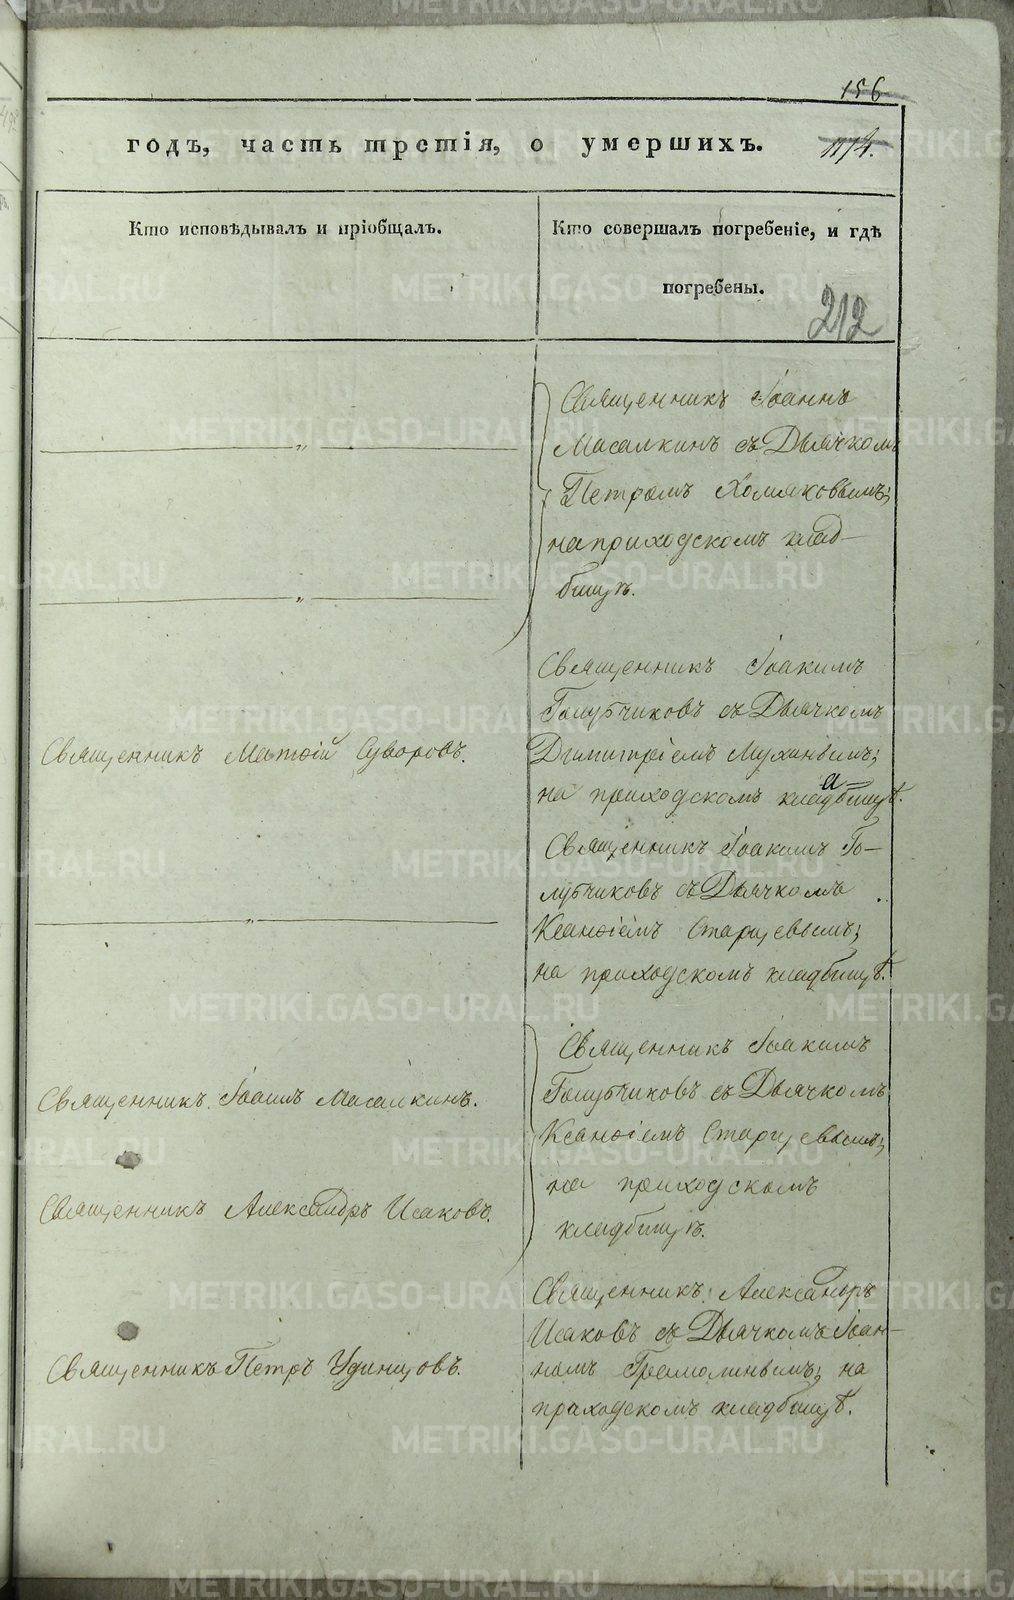 156
годъ, часть третія, о умершихъ.
1174.
Кто исповѣдывалъ и пріобщалъ.
Кто совершалъ погребеніе, и гдѣ
погребены.
212
Священникъ Іоаннъ
Масалкинъ съ Дьячкомъ
Петромъ Хомяковымъ;
на приходскомъ клад-
бищѣ.
Священникъ Матѳій Суворовъ.
Священникъ Іоакимъ
Голубчиковъ съ Дьячкомъ
Димитріемъ Мухинымъ;
на приходскомъ кладбищѣ.
Священникъ Іоакимъ Го-
лубчиковъ съ Дьячкомъ
Ксанѳіемъ Старцевымъ;
на приходскомъ кладбищѣ.
Священникъ Іоаннъ Масалкинъ.
Священникъ Александръ Исаковъ.
Священникъ Іоакимъ
Голубчиковъ съ Дьячкомъ
Ксанѳіемъ Старцевымъ;
на приходскомъ
кладбищѣ.
Священникъ Петръ Удинцовъ.
Священникъ Александръ
Исаковъ съ Дьячкомъ Іоан-
номъ Грамолинымъ; на
приходскомъ кладбищѣ.
METRIKI.GASO-URAL.RU